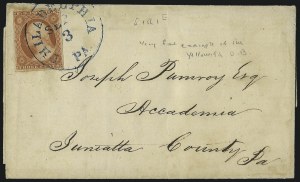 PHILADELPHIA
3
PA.
Very fine example of the
Joseph Pumroy Esq
Accademia
Juniatta County
Pa